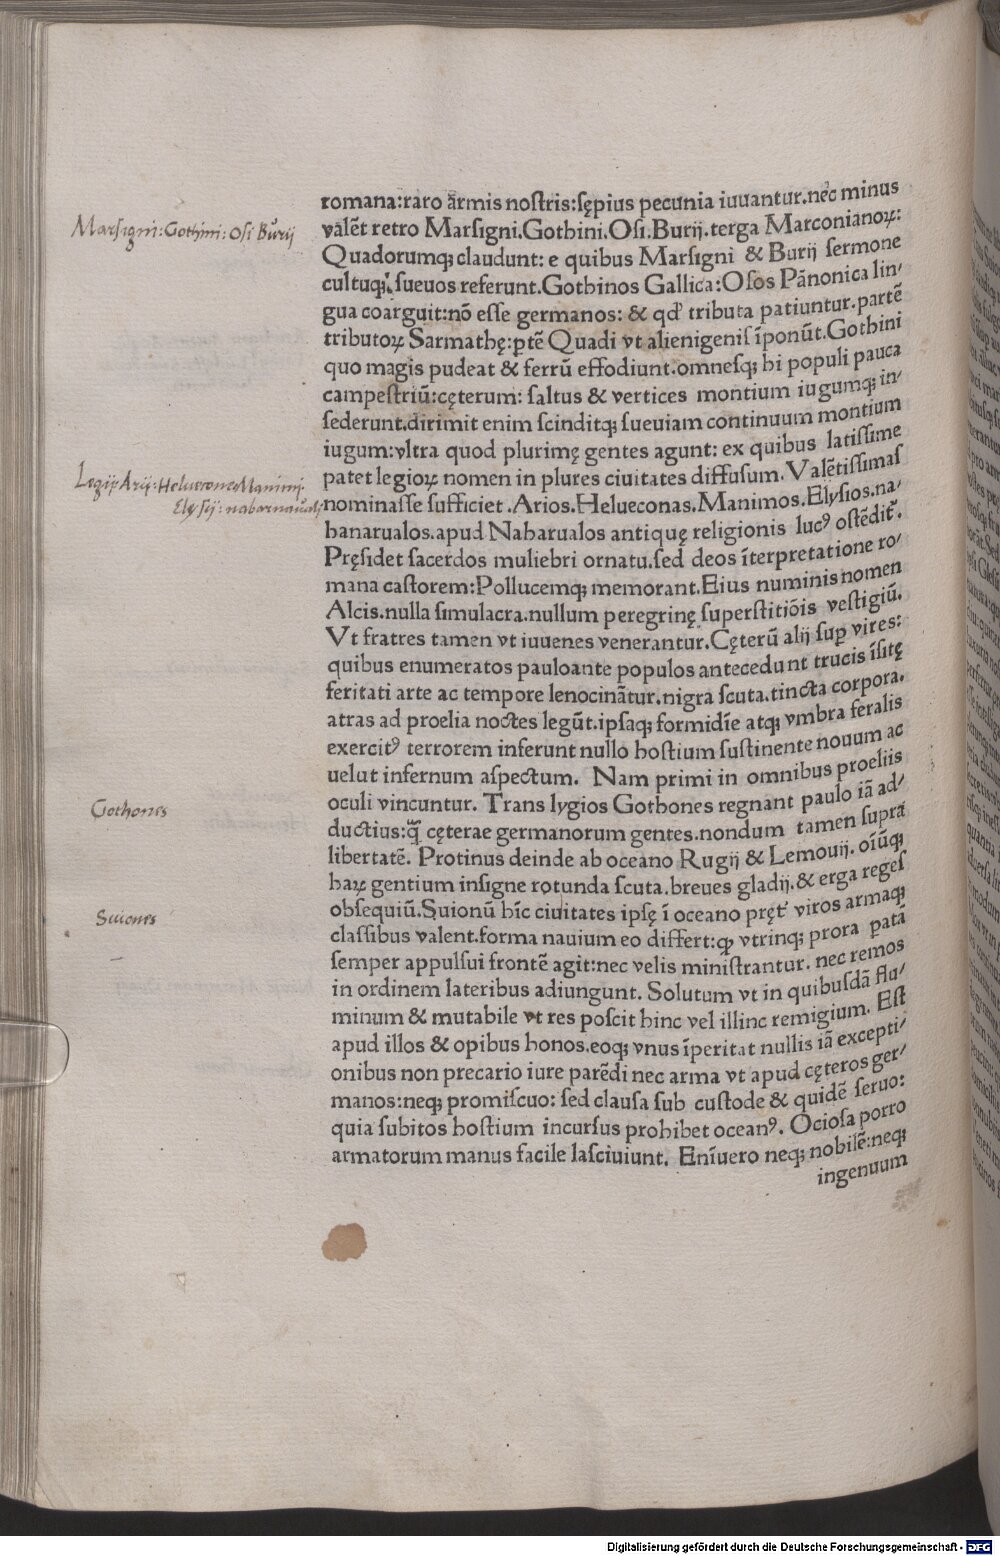 Marsigni: Gothini: Osi Burij
Legij: Arij: Heluecones Manimi.
Elysij: nabarnauali
Gothones
Suiones
romana:raro armis nostris:sępius pecunia iuuantur.nec minus
valēt retro Marsigni.Gothini.Osi.Burij.terga Marconianoꝝ:
Quadorumqꝫ claudunt: e quibus Marsigni & Burij sermone
cultuqꝫ sueuos referunt.Gothinos Gallica:Osos Pānonica lin⸗
gua coarguit:nō esse germanos: & qd' tributa patiuntur.partē
tributoꝝ Sarmathę:ꝑtē Quadi vt alienigenis īponūt.Gothini
quo magis pudeat & ferrū effodiunt.omnesqꝫ hi populi pauca
campestriū:cęterum: saltus & vertices montium iugumqꝫ in⸗
sederunt.dirimit enim scinditqꝫ sueuiam continuum montium
iugum:vltra quod plurimę gentes agunt: ex quibus latissime
patet legioꝝ nomen in plures ciuitates diffusum. Valētissimas
nominasse sufficiet .Arios.Helueconas.Manimos.Elysios.na⸗
hanarualos.apud Naharualos antiquę religionis lucꝰ ostēdit᷑.
Pręsidet sacerdos muliebri ornatu.sed deos īterpretatione ro⸗
mana castorem:Pollucemqꝫ memorant.Eius numinis nomen
Alcis.nulla simulacra.nullum peregrinę superstitiōis vestigiū.
Vt fratres tamen vt iuuenes venerantur.Cęterū alij suꝑ vires:
quibus enumeratos pauloante populos antecedunt trucis īsitę
feritati arte ac tempore lenocinātur.nigra scuta.tincta corpora.
atras ad proelia noctes legūt.ipsaqꝫ formidīe atqꝫ vmbra feralis
exercitꝰ terrorem inferunt nullo hostium sustinente nouum ac
uelut infernum aspectum. Nam primi in omnibus proeliis
oculi vincuntur. Trans lygios Gothones regnant paulo iā ad⸗
ductius:q̄ cęterae germanorum gentes.nondum tamen supra
libertatē. Protinus deinde ab oceano Rugij & Lemouij. oīūqꝫ
haꝝ gentium insigne rotunda scuta.breues gladij.& erga reges
obsequiū.Suionū hīc ciuitates ipsę ī oceano pręt᷑ viros armaqꝫ
classibus valent.forma nauium eo differt:ꝙ vtrinqꝫ prora ꝑatā
semper appulsui frontē agit:nec velis ministrantur. nec remos
in ordinem lateribus adiungunt. Solutum vt in quibusdā flu⸗
minum & mutabile vt res poscit hinc vel illinc remigium. Est
apud illos & opibus honos.eoqꝫ vnus īperitat nullis iā excepti⸗
onibus non precario iure parēdi nec arma vt apud cęteros ger⸗
manos:neqꝫ promiscuo: sed clausa sub custode & quidē seruo:
quia subitos hostium incursus prohibet oceanꝰ. Ociosa porro
armatorum manus facile lasciuiunt. Enīuero neqꝫ nobilē:neqꝫ
ingenuum
Digitalisierung gefördert durch die Deutsche Forschungsgemeinschaft - DFG